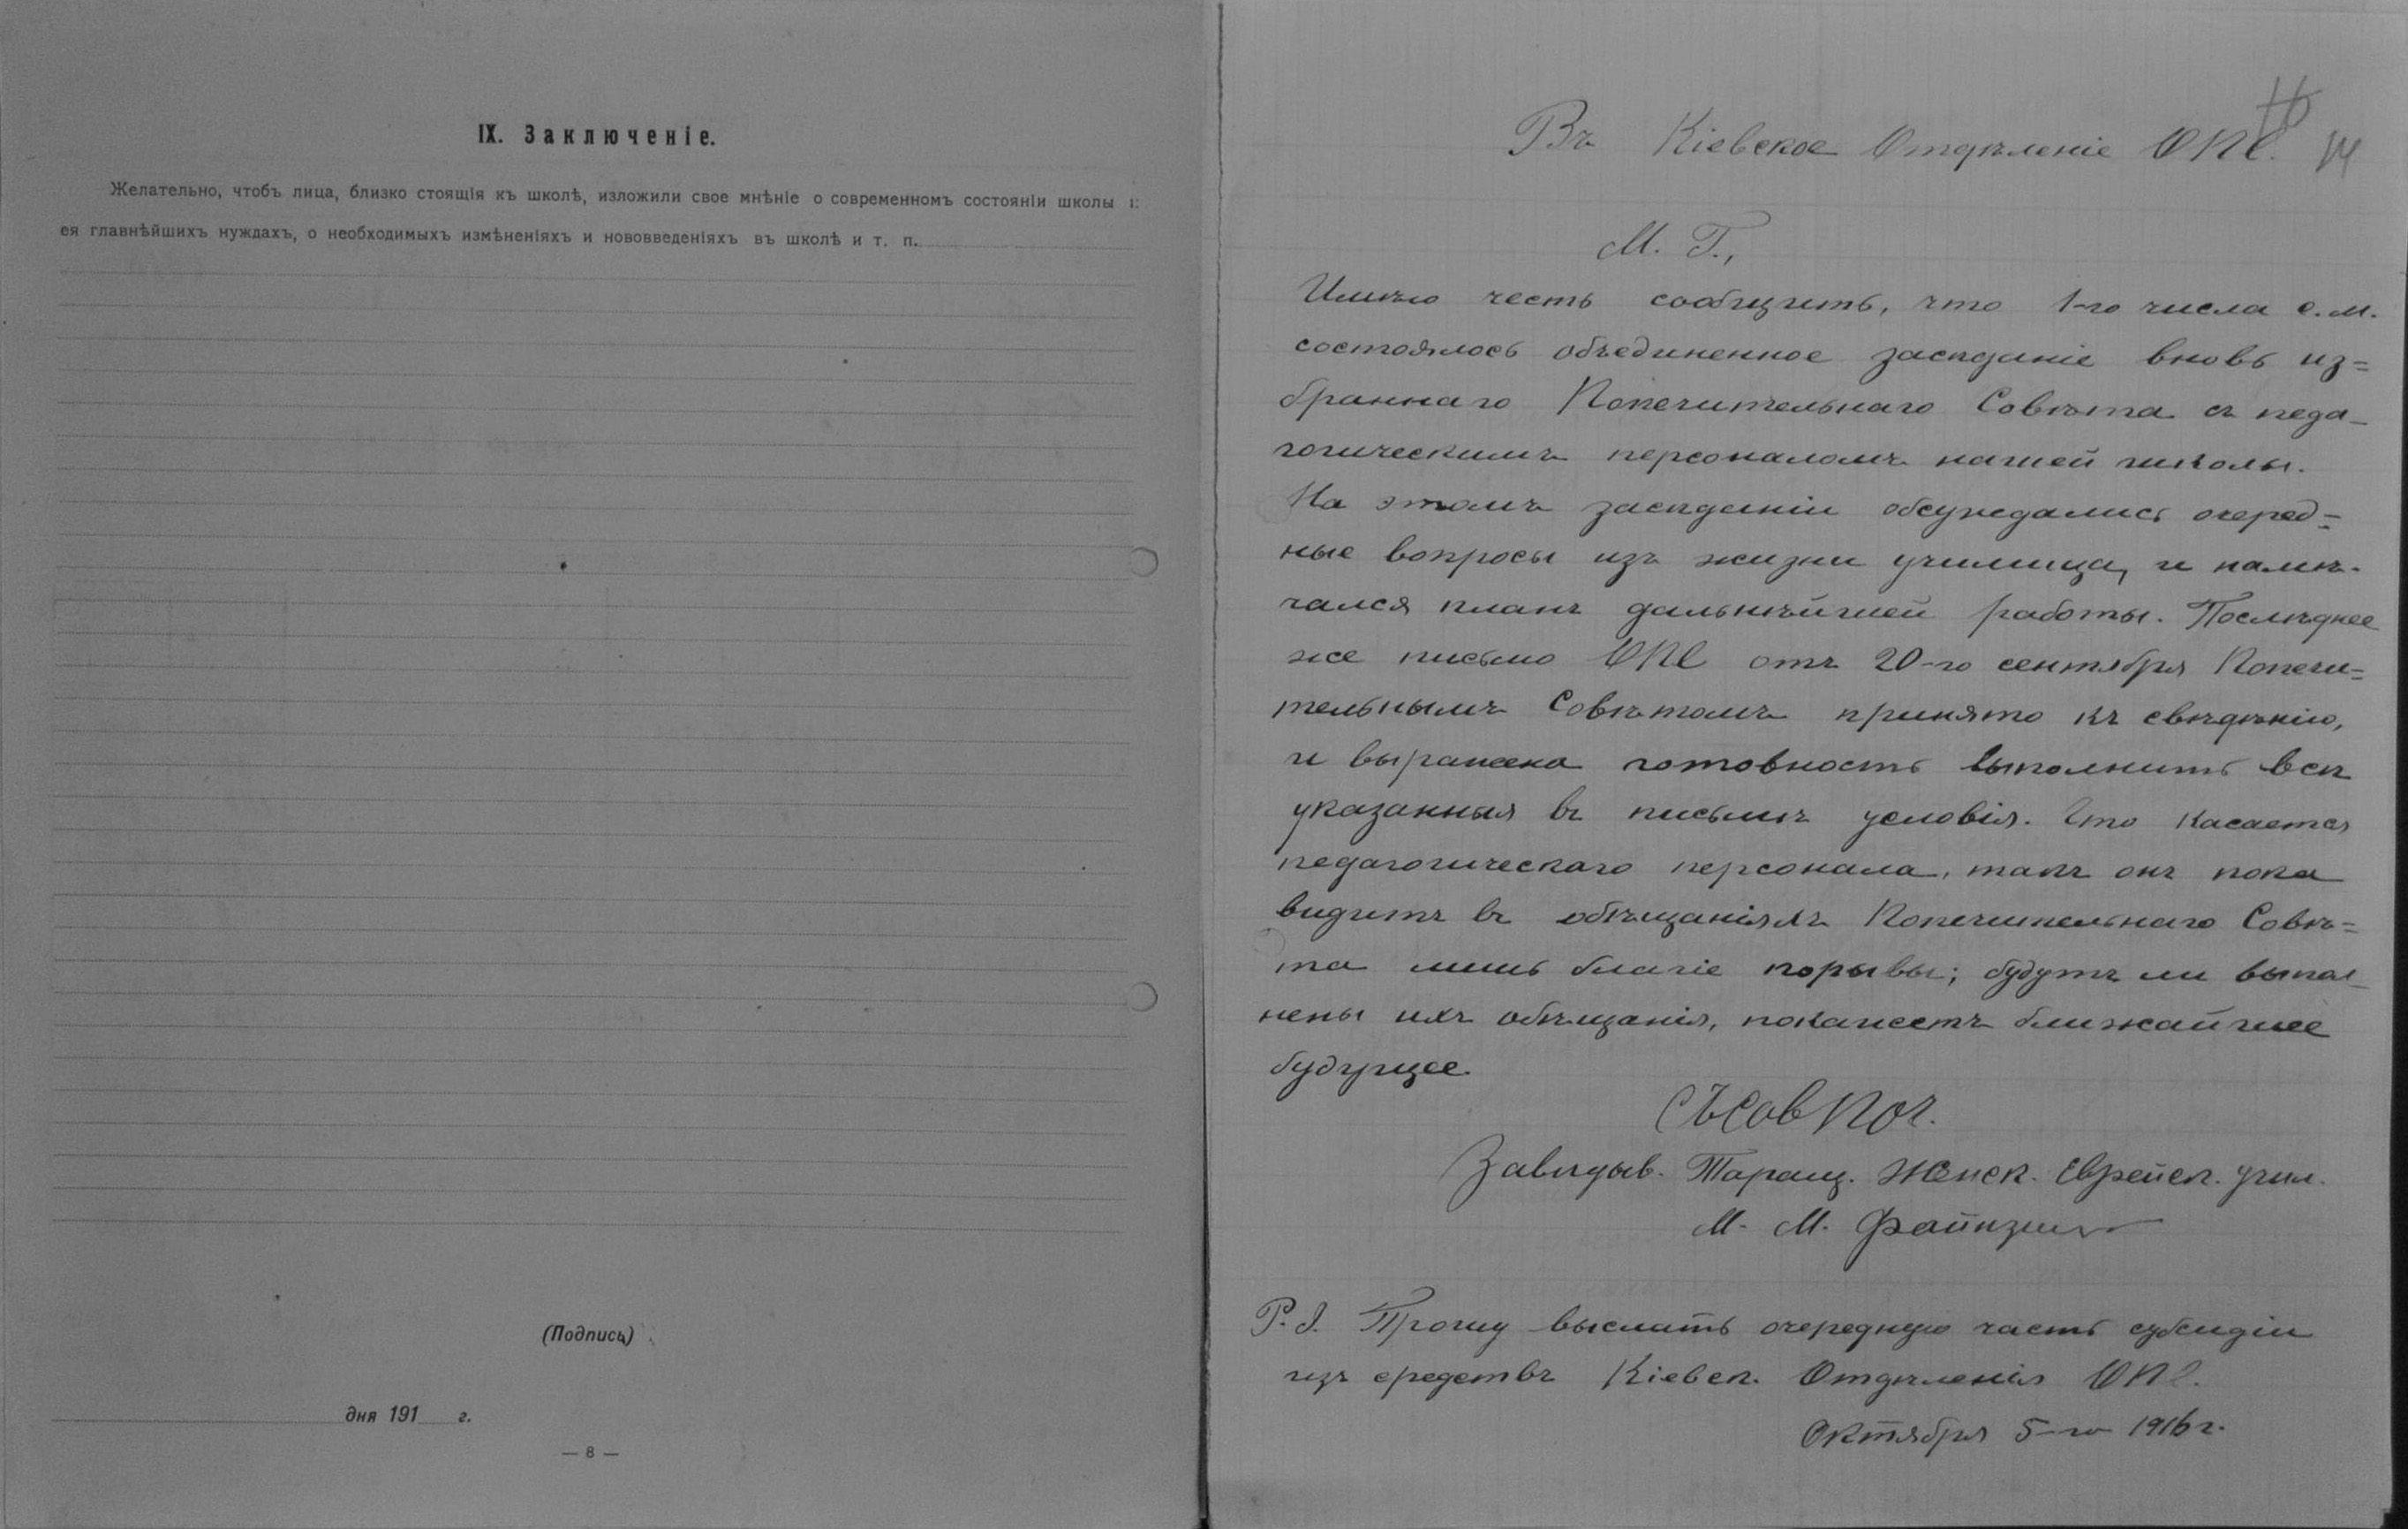 IX. Заключеніе.
Желательно, чтобъ лица, близко стоящія къ школѣ, изложили свое мнѣніе о современномъ состояніи школы
ея главнѣйшихъ нуждахъ, о необходимыхъ измѣненіяхъ и нововведеніяхъ въ школѣ и т. п.
(Подпись)
дня 191 г.
— 8 —
Въ Кіевское Отдѣленіе ОПЕ.
М. Г.,
Имѣю честь сообщить, что 1-го числа с. м.
состоялось объединенное засѣданіе вновь из=
браннаго Попечительнаго Совѣта съ педа-
гогическимъ персоналомъ нашей школы.
На этомъ засѣданіи обсуждались очеред=
ные вопросы изъ жизни училища, и намѣ-
чался планъ дальнѣйшей работы. Послѣднее
же письмо ОПЕ отъ 20-го сентября Попечи=
тельнымъ Совѣтомъ принято къ свѣдѣнію,
и выражена готовность выполнить всѣ
указанныя въ письмѣ условія. Что касается
педагогическаго персонала, такъ онъ пока
видитъ въ обѣщаніяхъ Попечительнаго Совѣ=
та лишь благіе порывы; будутъ ли выпол-
нены ихъ обѣщанія, покажетъ ближайшее
будущее.
Съ сов поч.
Завѣдыв. Таращ. Женск. Еврейск. учил.
М. М. Файнзи
P. S. Прошу выслать очередную часть субсидіи
изъ средствъ Кіевск. Отдѣленія ОПЕ.
Октября 5-го 1916 г.